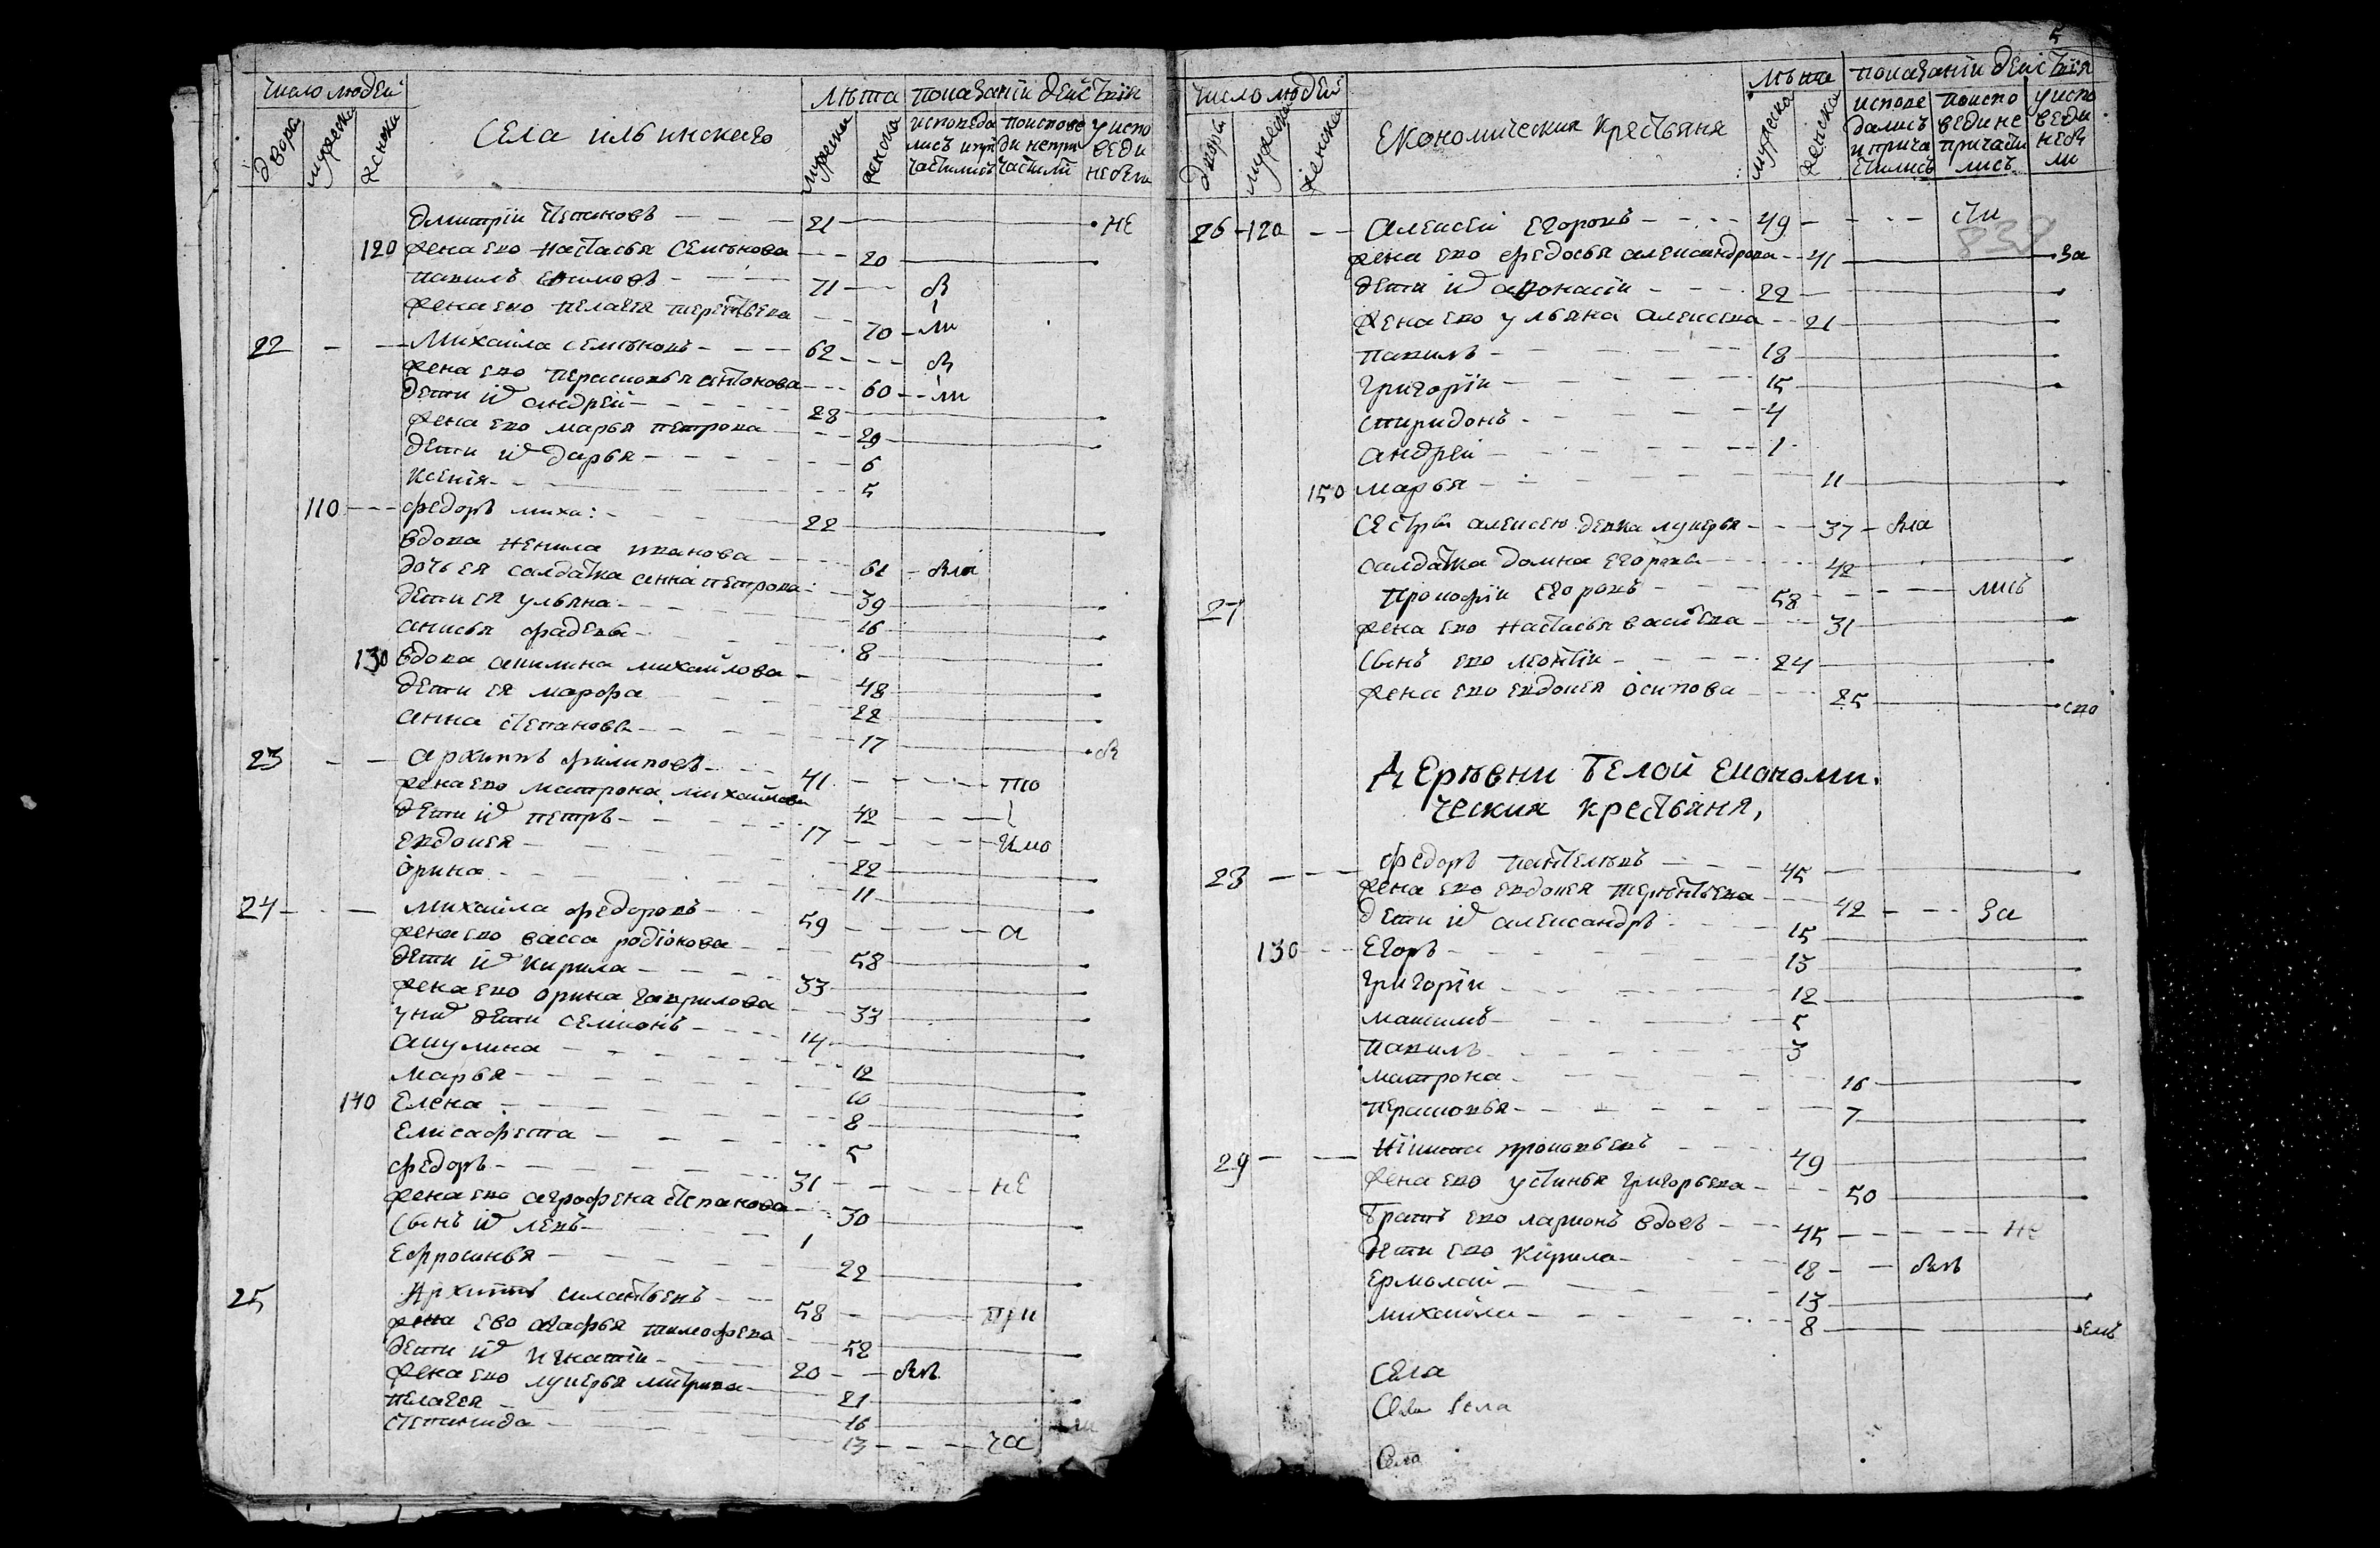 число людей
двора
мужеска
женска
Села ильинскаго
лѣта
мужеска
женска
показаніи действія
исповеда лись ипри частились
поиспове ди непри частили
у испо веди небыли
Дмитріи Степановъ 21 не
120 жена ево настасья Семенова 20
павилъ ефимовъ 71 бы
жена ево пелагея терентьева 70 ли
22 Михаила семеновъ 62 бы
жена ево перасковья антонова 60 ли
дети ихъ андрей 28
жена ево марья петрова 29
дети ихъ дарья 6
ксенія 5
110 федоръ миха: 22
вдова ненила иванова 61 была
дочь ея салдатка анна петрова 39
дети ея ульяна 16
анисья фадеевы 8
130 вдова акилина михайлова 48
дети ея марфа 22
анна степановы 17 бы
23 архипъ филиповъ 41 по
жена ево матрона михайлова 42
дети ихъ петръ 17
евдокея 22
орина 11
24 михаила федоровъ 59 а
жена ево васса родіонова 58
дети ихъ кирила 33
жена ево орина гаврилова 33
у них дети семионъ 14
акулина 12
марья 10
140 елена 8
елисафета 5
федоръ 31 не
жена ево аграфена степанова 30
сынъ ихъ левъ 1
ефросинья 22
25 Архипъ силантьевъ 58 при
жена ево агафья тимофеева 58
дети ихъ игнатіи 20 былъ
жена ево лукерья митрива 21
пелагея 16 ли
степанида 13 ча
5
число людей
двора
мужеска
женска
Економическия крестьяня
лѣта
мужеска
женска
показаніи действія
испове дались и прича стились
поиспо веди не причасти лись
у испо веди небы ли
26 120 алексей егоровъ 49 сти
838
жена ево федосья александрова 41 за
дети ихъ афонасіи 22
жена ево ульяна алексева 21
павилъ 18
григоріи 15
спиридонъ 4
андрей 1
150 марья 11
сестры алексею девка лукерья 37 была
салдатка домна егоровы 42
27 прокофіи егоровъ 58 лись
жена ево настасья васильева 31
сынъ ево леонтіи 24
жена ево евдокея осипова 25 ско
Деревни белой економи.
ческия крестьяня,
23 федоръ пантелѣвъ 45
жена ево евдокея терентьева 42 за
дети ихъ александръ 15
130 егоръ 13
григоріи 12
максимъ 5
павилъ 3
матрона 16
перасковья 7
29 никита прокофьевъ 49
жена ево устинья григорьева 50
братъ ево ларионъ вдовъ 45 не
дети ево кирила 18 былъ
ермолай 13
михаила 8 емъ
Села
Села
Село